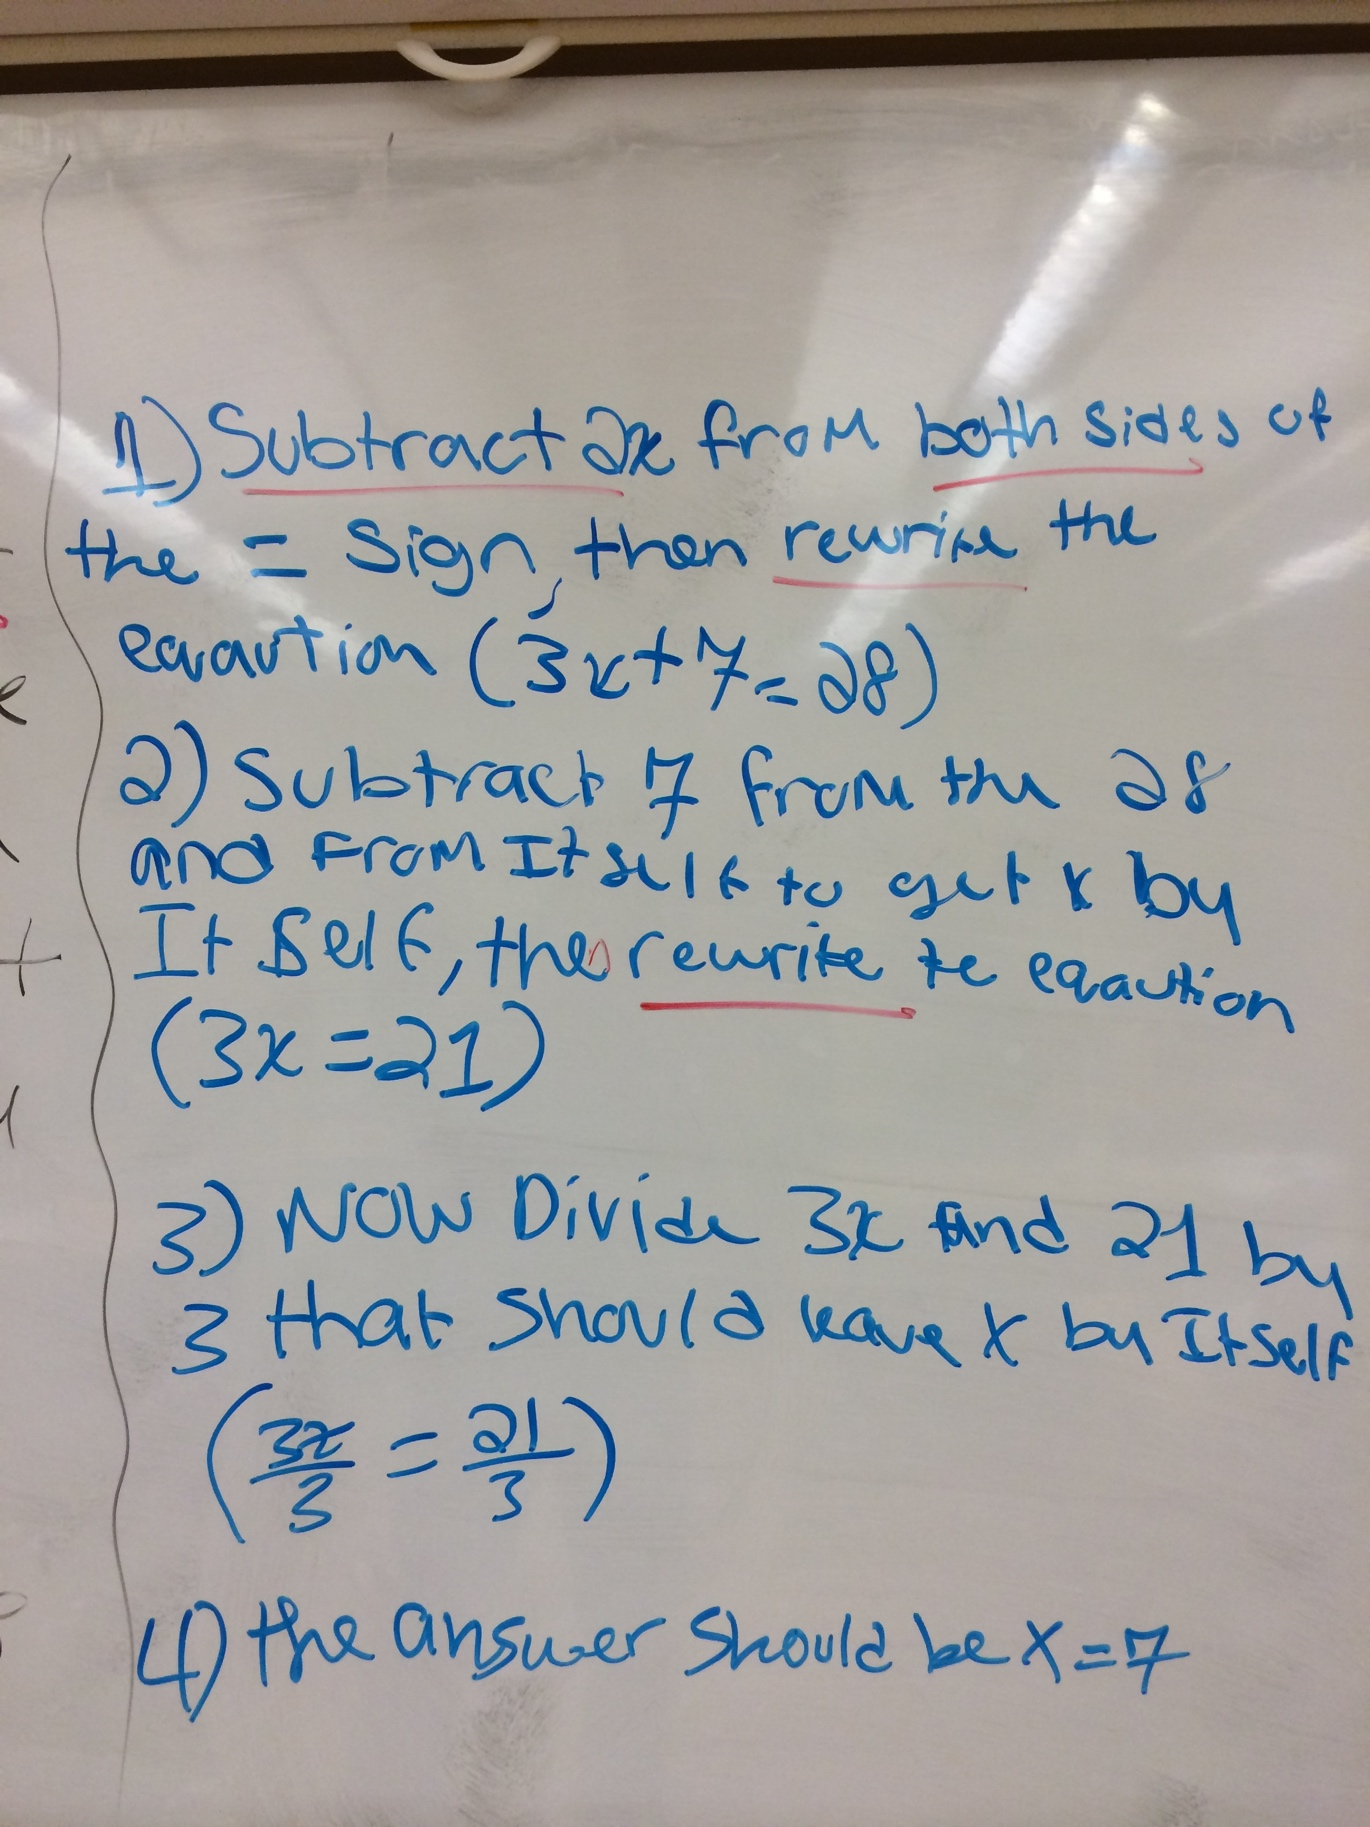 1) Subtract 2x from both sides of
the = sign, then rewrite the
eqaution (3x+7=28)
2) Subtract 7 from the 28
and From It self to get x by
It Self, then rewrite te eqaution
(3x=21)
3) NOW Divide 3x and 21 by
3 that should leave x by ItSelf
(3x/3 = 21/3)
4) the answer should be x=7